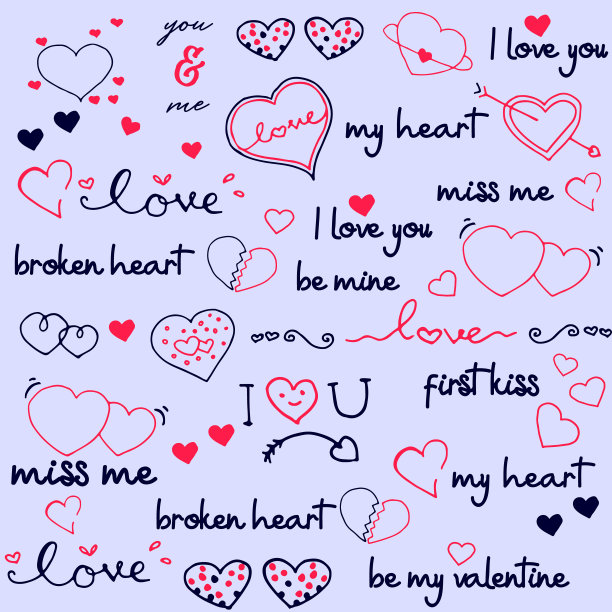 you
&
me
I love you
love
my heart
love
miss me
I love you
broken heart
be mine
love
first kiss
I U
miss me
my heart
broken heart
love
be my valentine